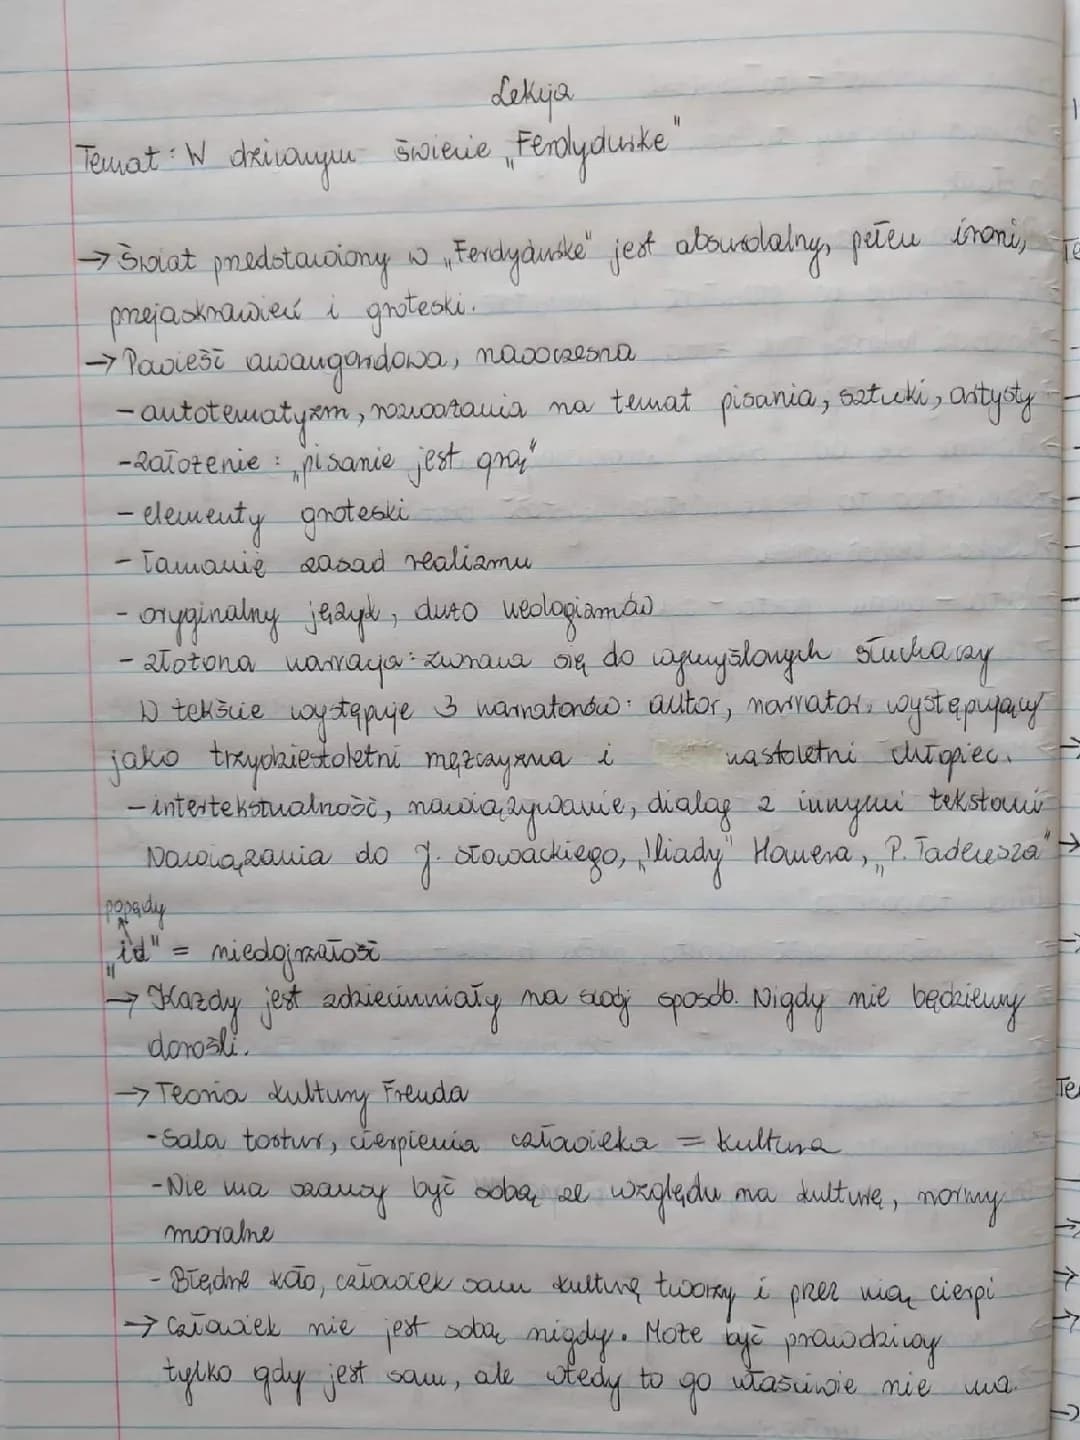 Lekcja
Temat: W dziwnym świecie „Ferdydurke"
→ Świat przedstawiony w „Ferdydurke" jest absurdalny, pełen ironi,
przejaskrawień i groteski.
→ Powieść awangardowa, nowoczesna
- autotematyzm, rozważania na temat pisania, sztuki, artysty
- założenie: „pisanie jest grą"
- elementy groteski
- łamanie zasad realizmu
- oryginalny język, dużo neologizmów
- złożona narracja: zwraca się do wymyślonych słuchaczy
W tekście występuje 3 narratorów: autor, narrator występujący
jako trzydziestoletni mężczyzna i nastoletni chłopiec.
- intertekstualność, nawiązywanie, dialog z innymi tekstami
Nawiązania do J. Słowackiego, „Iliady" Homera, „P. Tadeusza"
popędy
„id" = niedojrzałość
→ Każdy jest zdziecinniały na swój sposób. Nigdy nie będziemy
dorośli.
→ Teoria kultury Freuda
- Sala tortur, cierpienia człowieka = kultura
- Nie ma szansy być sobą ze względu na kulturę, normy
moralne
- Błędne koło, człowiek sam kulturę tworzy i przez nią cierpi
→ Człowiek nie jest sobą nigdy. Może być prawdziwy
tylko gdy jest sam, ale wtedy to go właściwie nie ma.